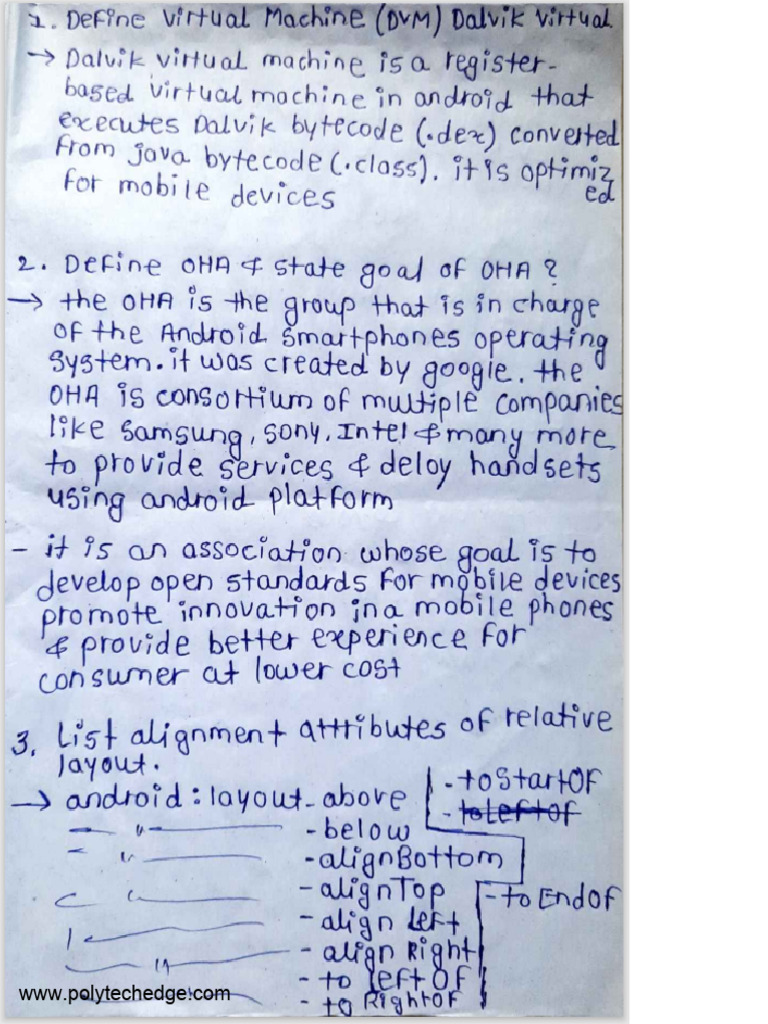 1. Define Virtual Machine (DVM) Dalvik Virtual
→ Dalvik virtual machine is a register-
based virtual machine in android that
executes Dalvik bytecode (.dex) converted
from java bytecode (.class). it is optimiz
ed
for mobile devices
2. Define OHA & state goal of OHA ?
→ the OHA is the group that is in charge
of the Android smartphones operating
system. it was created by google. the
OHA is consortium of multiple companies
like samsung, sony, Intel & many more
to provide services & deloy handsets
using android platform
- it is an association whose goal is to
develop open standards for mobile devices
promote innovation in a mobile phones
& provide better experience for
consumer at lower cost
3. List alignment attributes of relative
layout.
→ android : layout_above
- below
- alignBottom
- alignTop
- align Left
- align Right
- to left of
- to RightOf
- toStartOf
- toLeftOf
- to EndOf
www.polytechedge.com